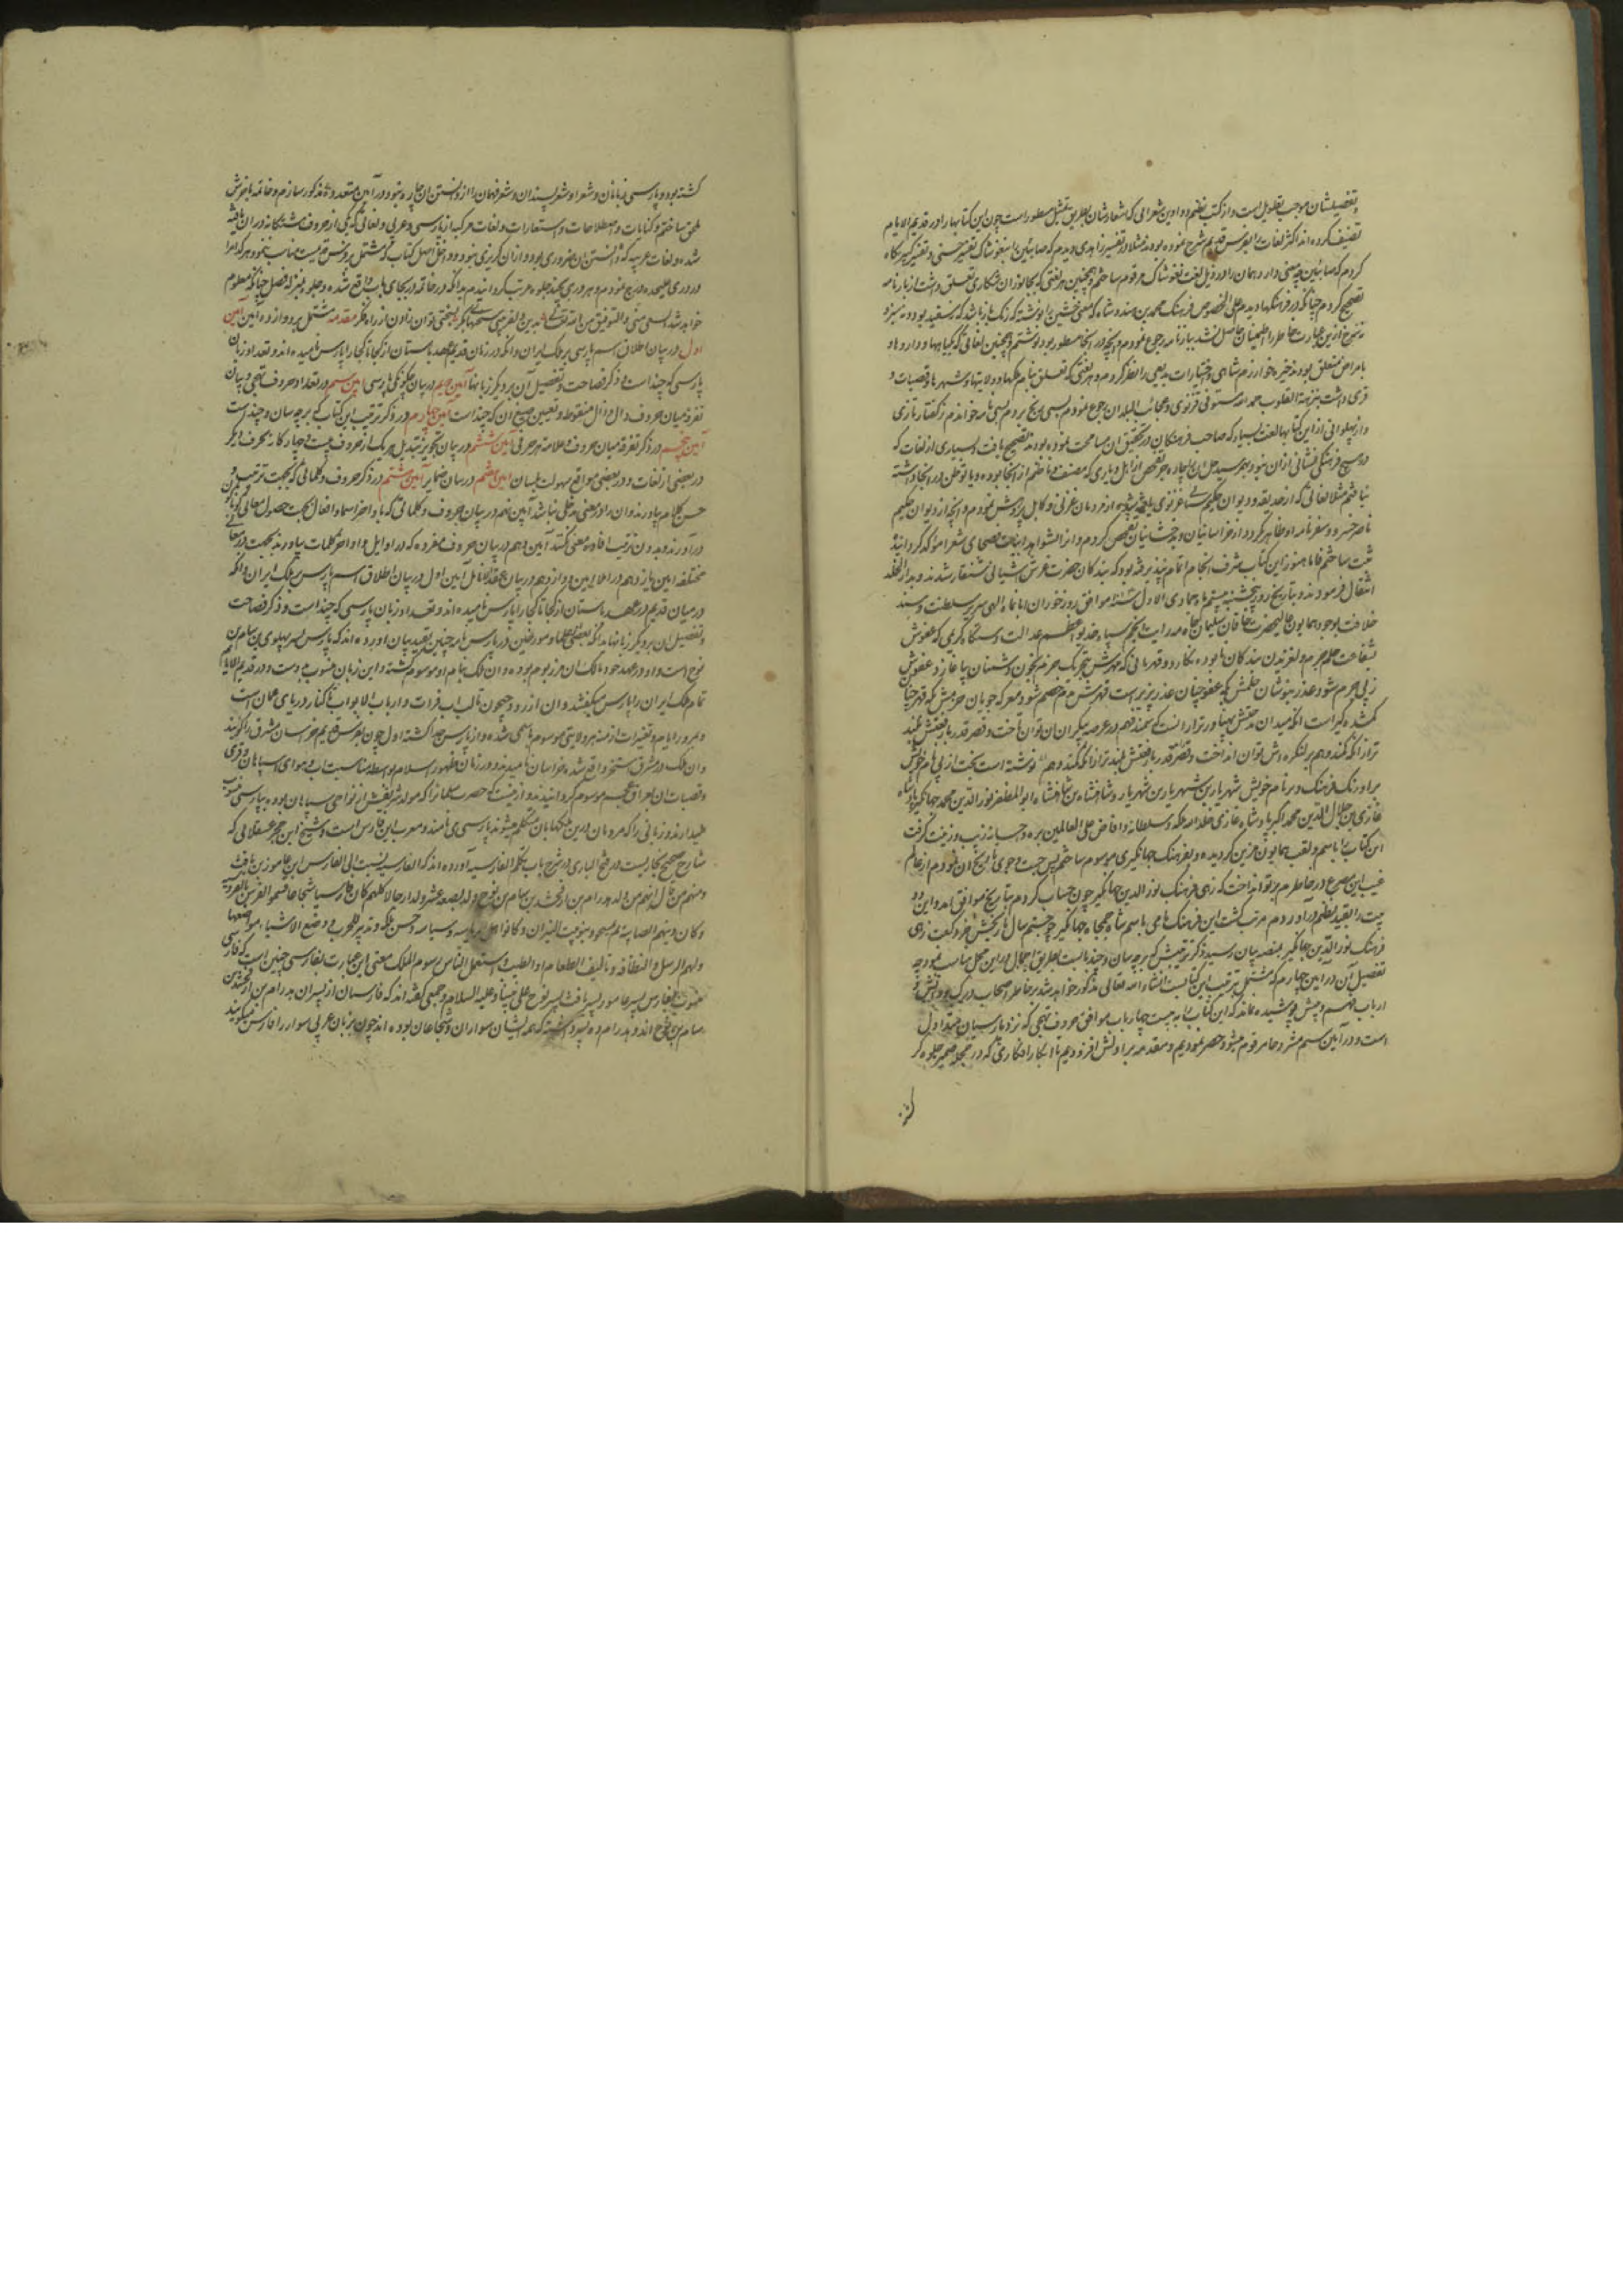 بتفصیلشان موجب تطویل است و از کتب نظم و دواوین شعرایی که اشعارشان بطریق تمثیل مسطور است چون این کتابها را در قدیم الایام
تصنیف کرده اند اکثر لغات را بفرس قدیم شرح نموده بودند مثلا در تفسیر زاهدی دیدم که صابئین را
کردم که صابئین چه معنی دارد همان را در ذیل لغت نغوشاک مرقوم ساختم و همچنین هر لغتی که بجانوران شکاری تعلق داشت از بازنامه
تصحیح کردم چنانکه در فرهنگها دیدم علی الخصوص فرهنگ محمد بن هندوشاه که معنی خشین را نوشته که رنگ باز باشد که سفید بود و نه سبز و
نه سرخ از این عبارت خاطر را اطمینان حاصل نشد ببازنامه رجوع نمودم و آنچه در اینجا مسطور بود نوشتم و همچنین لغاتی که بگیاهها و دارو ها و
بامراض متعلق بود بذخیره خوارزم شاهی و اختیارات بدیعی را نظر کردم و هر لغتی که تعلق بنام ملکها و ولایتها و شهرها و قصبات و
قری داشت بنزهة القلوب حمد الله مستوفی قزوینی و عجائب البلدان رجوع نمودم بسی رنج بردم بسی نامه خواندم ز گفتار تازی
و از پهلوانی از این کتابها لغت بسیار که صاحب فرهنگان در تحقیق آن مسامحت نموده بودند تصحیح یافت و بسیاری از لغات که
در هیچ فرهنگی نشانی از آن نبود بهم رسید
نیافتم مثلا لغاتی که از حدیقه و دیوان حکیم سنائی غزنوی یافته شد از مردمان غزنی و کابل پرسش نمودم و آنچه از دیوان حکیم
ناصر خسرو و سفرنامه او ظاهر گردد از خراسانیان و بدخشانیان تفحص کردم و از الشواهد ابیات فصحای شعرا مؤکد گردانیده
ثبت ساختم فاما هنوز این کتاب شرف انجام و اتمام نپذیرفته بود که بندگان حضرت عرش آشیانی شنقار شدند و بدار الخلد
انتقال فرمودند و بتاریخ روز پنجشنبه بیستم ماه جمادی الاول موافق روز خور آبان ماه الهی سریر سلطنت و مسند
خلافت بوجود همایون اعلیحضرت خاقان سلیمان جاه مه رایت انجم سپاه خدیو اعظم عدالت دستگاه کریمی که عفوش
شفاعت جرم و لغزیدن بندگان نابوده بکار رود و قهرمانی که قهرش بتحریک جرم بخون دشمنان پیاغازد و عفوش
زپی جرم شود عذر نیوشان حلمش که عفو چنان عذر پذیر است قهرش
گمشده گیر است
ترازانکه کمند و هم بر کنگره اش توان انداخت و قصر قدر با رفعتش بلند ترازانکه کمند و هم نوشته است بخت از پی نام خویش
بر اورنگ فرهنگ و بر نام خویش شهریار بن شهریار بن شهریار و شاهنشاه بن شاهنشاه ابو المظفر نور الدین محمد جهانگیر پادشاه
غازی بن جلال الدین محمد اکبر پادشاه غازی خلد الله ملکه و سلطانه و افاض علی العالمین بره و احسانه زیب و زینت گرفت
این کتاب را باسم و لقب همایون مزین گردیده و بفرهنگ جهانگیری موسوم ساختم پس جست و جوی تاریخ آن نمودم از عالم
غیب این مصرع در خاطرم پرتو انداخت که زهی فرهنگ نور الدین جهانگیر چون حساب کردم بتاریخ موافق آمد و این دو
بیت را بقید نظم در آوردم مرتب گشت این فرهنگ نامی باسم شاه جمجاه جهانگیر چو جستم سال تاریخش خرد گفت زهی
فرهنگ نور الدین جهانگیر بمنصه بیان رسید ذکر ترتیبش که بر چه سان و چند بابست بطریق اجمال در این محل مناسب نمود چه
تفصیل آن در آیین چهارم که مشتمل بر ترتیب این کتابست انشاء الله تعالی مذکور خواهد شد بر خاطر اصحاب درک و دانش و
ارباب فهم و بینش پوشیده نماند که این کتاب را به بیست چهار باب موافق حروف تهجی که نزد پارسیان متداول
است و در آیین سیم مشروحا مرقوم میشود حصر نمودیم و مقدمه بر اولش افزودیم تا ابکار افکاری که در حجله ضمیر جلوه گر
گشته بود و پارسی زبانان و شعرا و شعر پسندان و شعر فهمان را از دانستن آن چاره نبود در آیین متعدده مذکور سازم و خاتمه بآخرش
ملحق ساختم و کنایات و اصطلاحات و استعارات و لغات مرکبه از پارسی و عربی و لغاتی که یکی از حروف هشتگانه در آن یافته
شده و لغات غریبه که دانستن آن ضروری بود و از آن گریزی نبود و در داخل اصل کتاب که مشتمل بر فرس قدیمست مناسب ننمود هر کدام را
در دری علیحده درج نمودم و هر دری بچند جلوه مرتب گردانیدم بدانکه در خاتمه در بجای باب واقع شده و جلوه بمنزله فصل چنانکه معلوم
خواهد شد السعی منی و التوفیق من الله تعالی بدین دلفریبی سخنهای بکر بسختی توان زادن از راه فکر مقدمه مشتمل بر دوازده آیین آیین
اول در بیان اطلاق اسم پارسی بر ملک ایران و آنکه در زمان قدیم و عهد باستان از کجا تا کجا را پارس نامیده اند و تعداد زبان
پارسی که چند است و ذکر فصاحت و تفصیل آن بر دیگر زبانها آیین دویم در بیان چگونگی پارسی آیین سیم در تعداد حروف تهجی و بیان
تفرقه میان حروف دال و ذال منقوطه و تعیین صیغ آن که چند است آیین چهارم در ذکر ترتیب این کتاب که بر چه سان و چند است
آیین پنجم در ذکر تفرقه میان حروف و علامت هر حرفی آیین ششم در بیان تجویز تبدیل هر یک از حروف بیست و چارگانه بحرف دیگر
در بعضی از لغات و در بعضی مواقع سهولت بلسان آیین هفتم در بیان ضمایر آیین هشتم در ذکر حروف و کلماتی که بجهت ترتیب و
حسن کلام بیاورند و آن را در معنی مدخلی نباشد آیین نهم در بیان حروف و کلماتی که با واخر اسما و افعال بجهت حصول معانی گوناگون
در آورند و بدون ترتیب افاده معنی نکنند آیین دهم در بیان حروف مفرده که در اوایل و اواخر کلمات بیاورند بجهت معانی
مختلفه آیین یازدهم در املا آیین دوازدهم در بیان عقد انامل آیین اول در بیان اطلاق اسم پارس بر ملک ایران و آنکه
در میان قدیم در عهد باستان از کجا تا کجا را پارس نامیده اند و تعداد زبان پارسی که چند است و ذکر فصاحت
و تفضیل آن بر دیگر زبانها بدانکه بعضی علما و مورخین در پارس نامه چنین بقید بیان آورده اند که پارس پسر پهلو بن سام بن
نوح است و او در عهد خود مالک آن مرز بوم بوده و آن ملک بنام او موسوم گشته و این زبان منسوب بدوست و در قدیم الایام
تمام ملک ایران را پارس میگفتند و آن از رود جیحون تا لب آب فرات و از باب الابواب تا کنار دریای عمان است
و بمرور ایام و تغییرات ازمنه هر ولایتی موسوم باسمی شده و از پارس جدا گشته اول چون بفرس قدیم خراسان مشرق را گویند
و آن ملک در مشرق استخر واقع شده خراسان نامیدند و در زمان ظهور اسلام بواسطه مناسبت آب و هوای اسپاهان و قری
و قصبات آن بعراق عجم موسوم گردانیدند و از ینست که حضرت سلمان را که مولد شریفش از نواحی سپاهان بوده بپارسی منسوب
میدارند و زبانی را که مردمان در این ملکها بان متکلم میشوند پارسی می نامند و معرب این فارس است و شیخ ابن حجر عسقلانی که
شارح صحیح بخاریست در فتح الباری در شرح باب تکلم الفارسیه آورده اند که الفارسیه نسبت الی الفارس ابن عامور بن یافث
و منهم من قال انهم من ولد هدرام بن ارفخشد بن سام بن نوح و ولد بضعه عشر ولدا رجالا کلهم کان فارسا شجاعا فسموا الفرس بالفروسیه
و کان دینهم الصابئه ثم تمجسوا و بنو بیت النیران و کانوا اهل ریاسه و سیاسه و حسن مملکه و تدبیر للحرب و وضع الاشیاء مواضعها
و لهم الترسل و النظافه و تالیف الطعام او الطیب و استعمل الناس رسوم الملک معنی این عبارت بفارسی چنین است که فارسی
منسوب بفارس پسر عامور پسر یافث پسر نوح علی نبینا و علیه السلام و جمعی گفته اند که فارسیان از پسران هدرام بن ارفخشد بن
سام بن نوح اند و هدرام ده و اند پسر داشته که همه ایشان سواران و شجاعان بوده اند چون بزبان عربی سوار را فارس میگویند